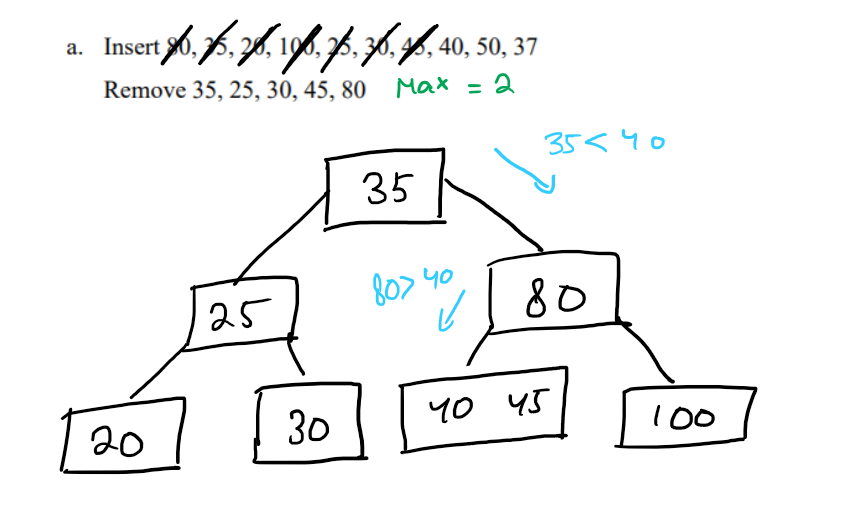 a. Insert 80, 35, 20, 100, 25, 30, 45, 40, 50, 37
Remove 35, 25, 30, 45, 80 Max = 2
35 < 40
35
80 > 40
25
80
20
30
40 45
100